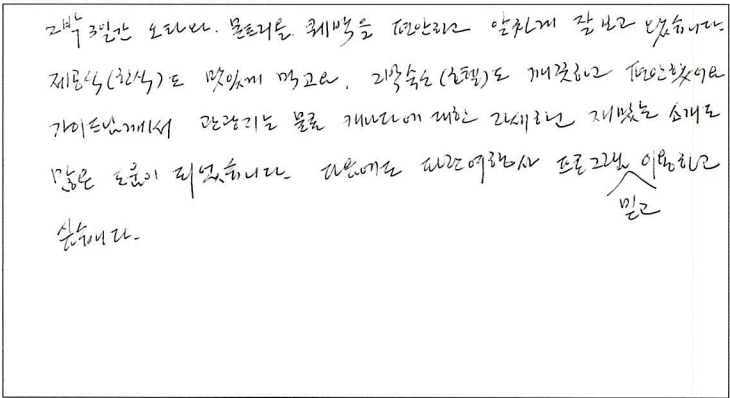 2박 3일간 오타와. 몬트리올. 퀘벡을 편안하고 알차게 잘 보고 왔습니다.
제공식(한식)도 맛있게 먹고요, 2박 숙소(호텔)도 깨끗하고 편안했어요
가이드님께서 관광지는 물론 캐나다에 대한 자세하고 재밌는 소개도
많은 도움이 되었습니다. 다음에도 파란여행사 프로그램 이용하고
믿고
싶습니다.